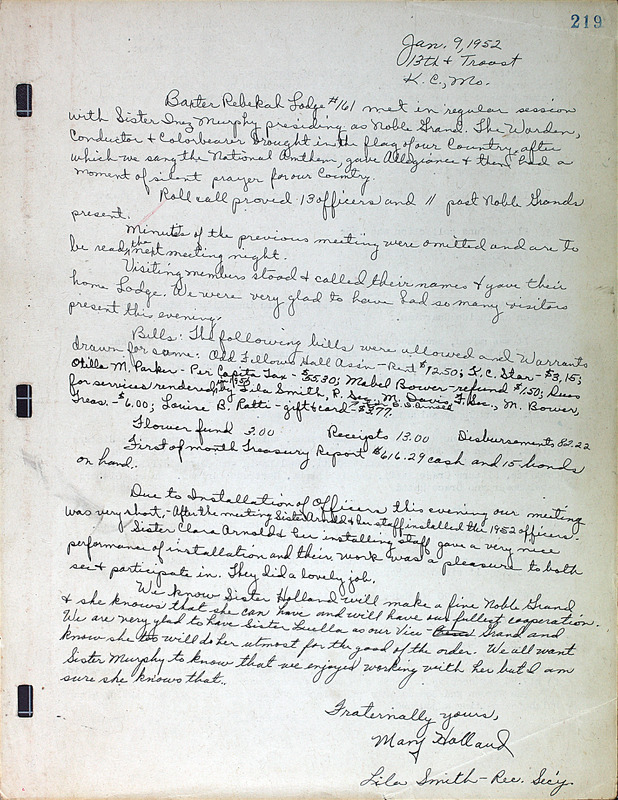 219
Jan. 9, 1952
13th & Troost
K.C., Mo.
Baxter Rebekah Lodge #161 met in regular session
with Sister Inez Murphy presiding as Noble Grand. The Warden,
Conductor & Colorbearer brought in the flag of our Country, after
which we sang the National Anthem, gave Allegiance & then had a
moment of silent prayer for our Country.
Roll call proved 13 officers and 11 past Noble Grands
present.
Minutes of the previous meeting were omitted and are to
be read the next meeting night.
Visiting members stood & called their names & gave their
home Lodge. We were very glad to have had so many visitors
present this evening.
Bills: The following bills were allowed and Warrants
drawn for same: Odd Fellows Hall Ass'n - Rent $12.50; K.C. Star - $3.15;
Otilla M. Parker - Per Capita Tax - $55.30; Mabel Bower - refund $1.50; Dues
for services rendered, 1952, Lila Smith, R. Sec., M. Davis, F. Sec., M. Bower,
Treas. - $6.00; Louise B. Ratti - gift & card - $3.77.
Flower fund 3.00 Receipts 13.00 Disbursements 82.22
First of month Treasury Report $616.29 cash and 15 bonds
on hand.
Due to Installation of Officers this evening our meeting
was very short. - After the meeting Sister Arnold & her staff installed the 1952 officers.
Sister Clara Arnold & her installing staff gave a very nice
performance of installation and their work was a pleasure to both
see & participate in. They did a lovely job.
We know Sister Holland will make a fine Noble Grand
& she knows that she can have and will have our fullest cooperation.
We are very glad to have Sister Luella as our Vice Grand and
know she too will do her utmost for the good of the order. We all want
Sister Murphy to know that we enjoyed working with her but I am
sure she knows that.
Fraternally yours,
Mary Holland
Lila Smith - Rec. Sec'y.